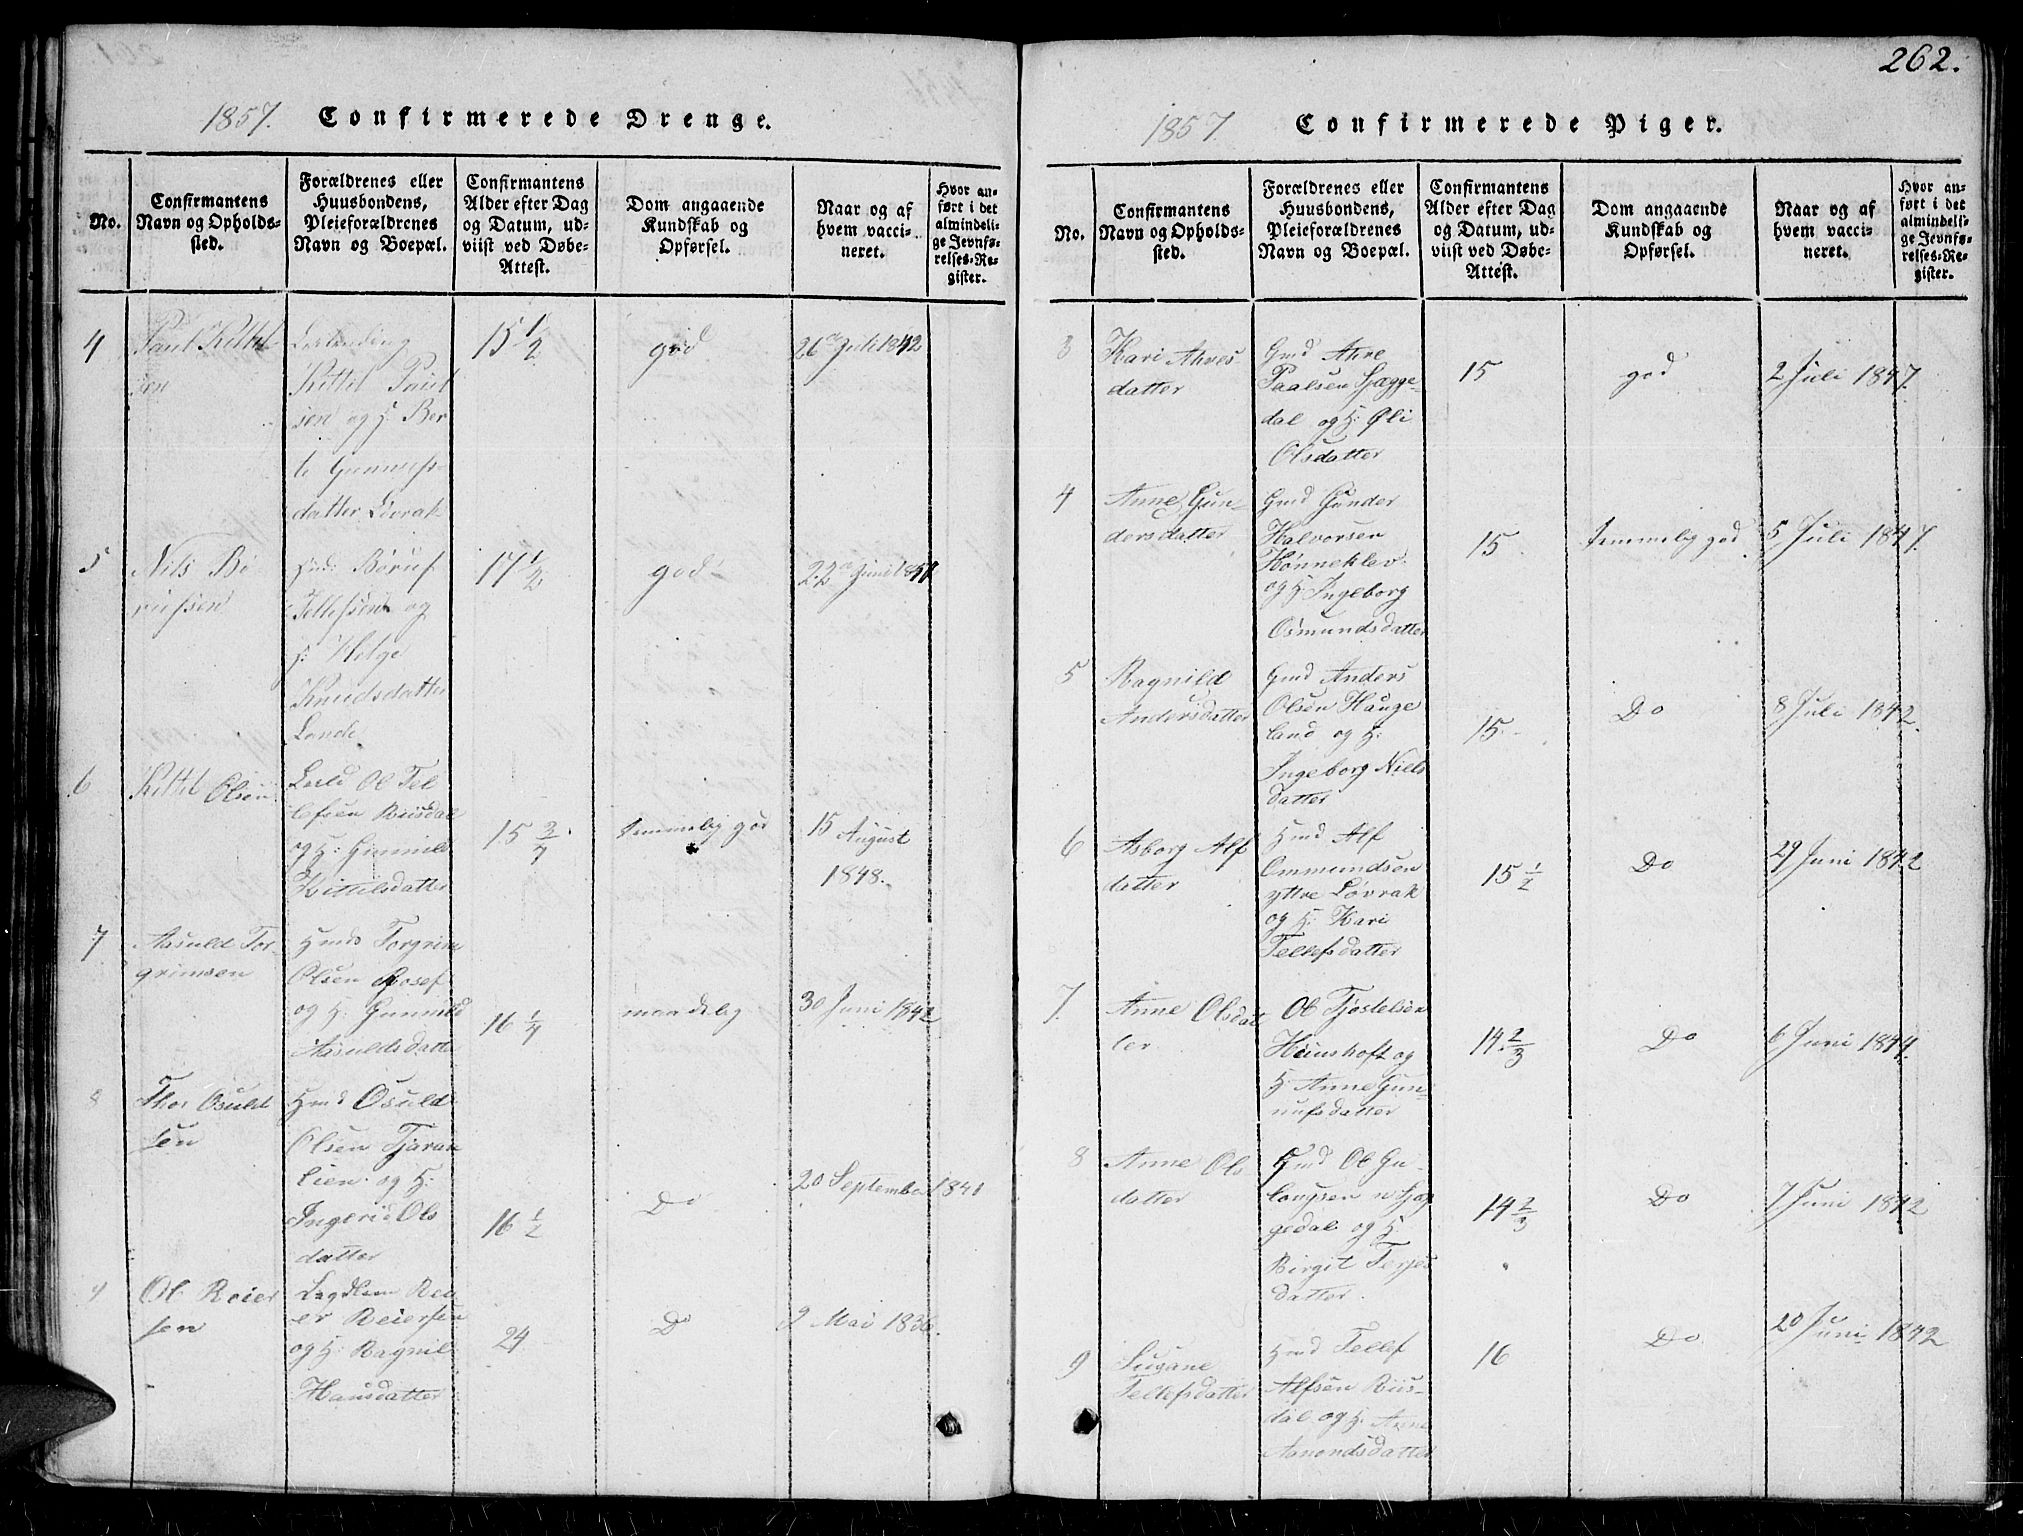 262.
1857. Confirmerede Drenge.
No.
Confirmantens
Navn og Opholds-
sted.
Forældrenes eller
Huusbondens,
Pleieforældrenes
Navn og Boepæl.
Confirmantens
Alder efter Dag
og Datum, ud-
viist ved Døbe-
Attest.
Dom angaaende
Kundskab og
Opførsel.
Naar og af
hvem vacci-
neret.
Hvor an-
ført i det
almindeli-
ge Jevnfø-
relses-Re-
gister.
4
Paul Kittel-
sen
Kittil Paul
sen og H: Ber
te Gunnufs-
datter Løvrak
15 1/2
god
26 Juli 1842
5
Nils Bø
riufsen
Gmd: Børuf
Tellefsen og
H: Helge
Knudsdatter
Lande
17 1/2
god
22 Juni
6
Kittil Olsen
Ol Tel
lefsen Riisdal
og H: Gunnild
Kittilsdatter
15 3/4
temmelig god
15
August
1848.
7
Aasuld Tor-
grimsen
Hmd Torgrim
Olsen Rosef
og H: Gunnild
Aasuldsdatter
16 1/4
maadelig
30 Juni 1842
8
Thor Osuld
sen
Hmd Osuld
Olsen Tjaran
lien og H:
Ingerid Ols
datter
16 1/2
Do
20 September 1841
9
Ol Reier
sen
Lægdlem Rei
er Reiersen
og H: Ragnil
Hansdatter
24
Do
9 Mai 1836.
1857. Confirmerede Piger.
No.
Confirmantens
Navn og Opholds-
sted.
Forældrenes eller
Huusbondens,
Pleieforældrenes
Navn og Boepæl.
Confirmantens
Alder efter Dag
og Datum, ud-
viist ved Døbe-
Attest.
Dom angaaende
Kundskab og
Opførsel.
Naar og af
hvem vacci-
neret.
Hvor an-
ført i det
almindeli-
ge Jevnfø-
relses-Re-
gister.
3
Kari Aanes
datter
Gmd
Paalsen Sjægge-
dal og H: Øli
Olsdatter
15
god
2 Juli 1847.
4
Anne Gun-
dersdatter
Gmd Gunder
Halvorsen
Hønneklev
og H: Ingeborg
Osmundsdatter
15
temmelig god
5 Juli 1847.
5
Ragnild
Andersdatter
Gmd Anders
Olsen Hauge
land og H:
Ingeborg Niels
datter
15
Do
8 Juli 1842.
6
Asborg Alf
datter
Hmd Alf
Ommundsen
yttre Løvrak
og H: Kari
Tellefsdatter
15 1/2
Do
29 Juni 1842
7.
Anne Olsdat
ter
Ol Tjøstelsen
Hunshoft og
H: Anne Gun-
nufsdatter
14 2/3
Do
6 Juni 1844.
8
Anne Ols
datter
Hmd Ol Gu-
lougsen n Sjæg
gedal og H:
Birgit Terjes
datter.
14 2/3
Do
7 Juni 1842
9
Sigane
Tellefsdatter
Hmd Tellef
Alfsen Riis-
dal og H: Anne
Aanondsdatter
16
Do
20 Juni 1842